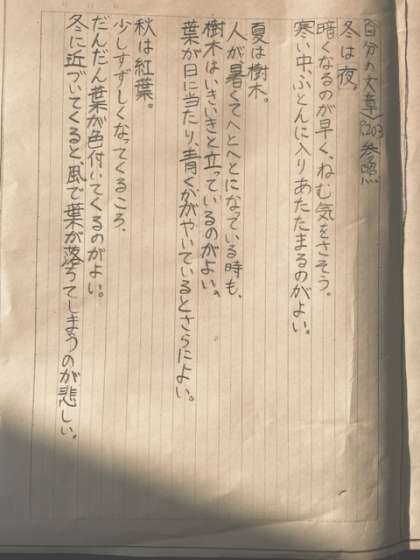 自分の文章（P.203参照）
冬は夜。
暗くなるのが早く、ねむ気をさそう。
寒い中、ふとんに入りあたたまるのがよい。
夏は樹木。
人が暑くてへとへとになっている時も、
樹木はいきいきと立っているのがよい。
葉が日に当たり、青くかがやいているとさらによい。
秋は紅葉。
少しすずしくなってくるころ、
だんだん葉が色付いてくるのがよい。
冬に近づいてくると、風で葉が落ちてしまうのが悲しい。